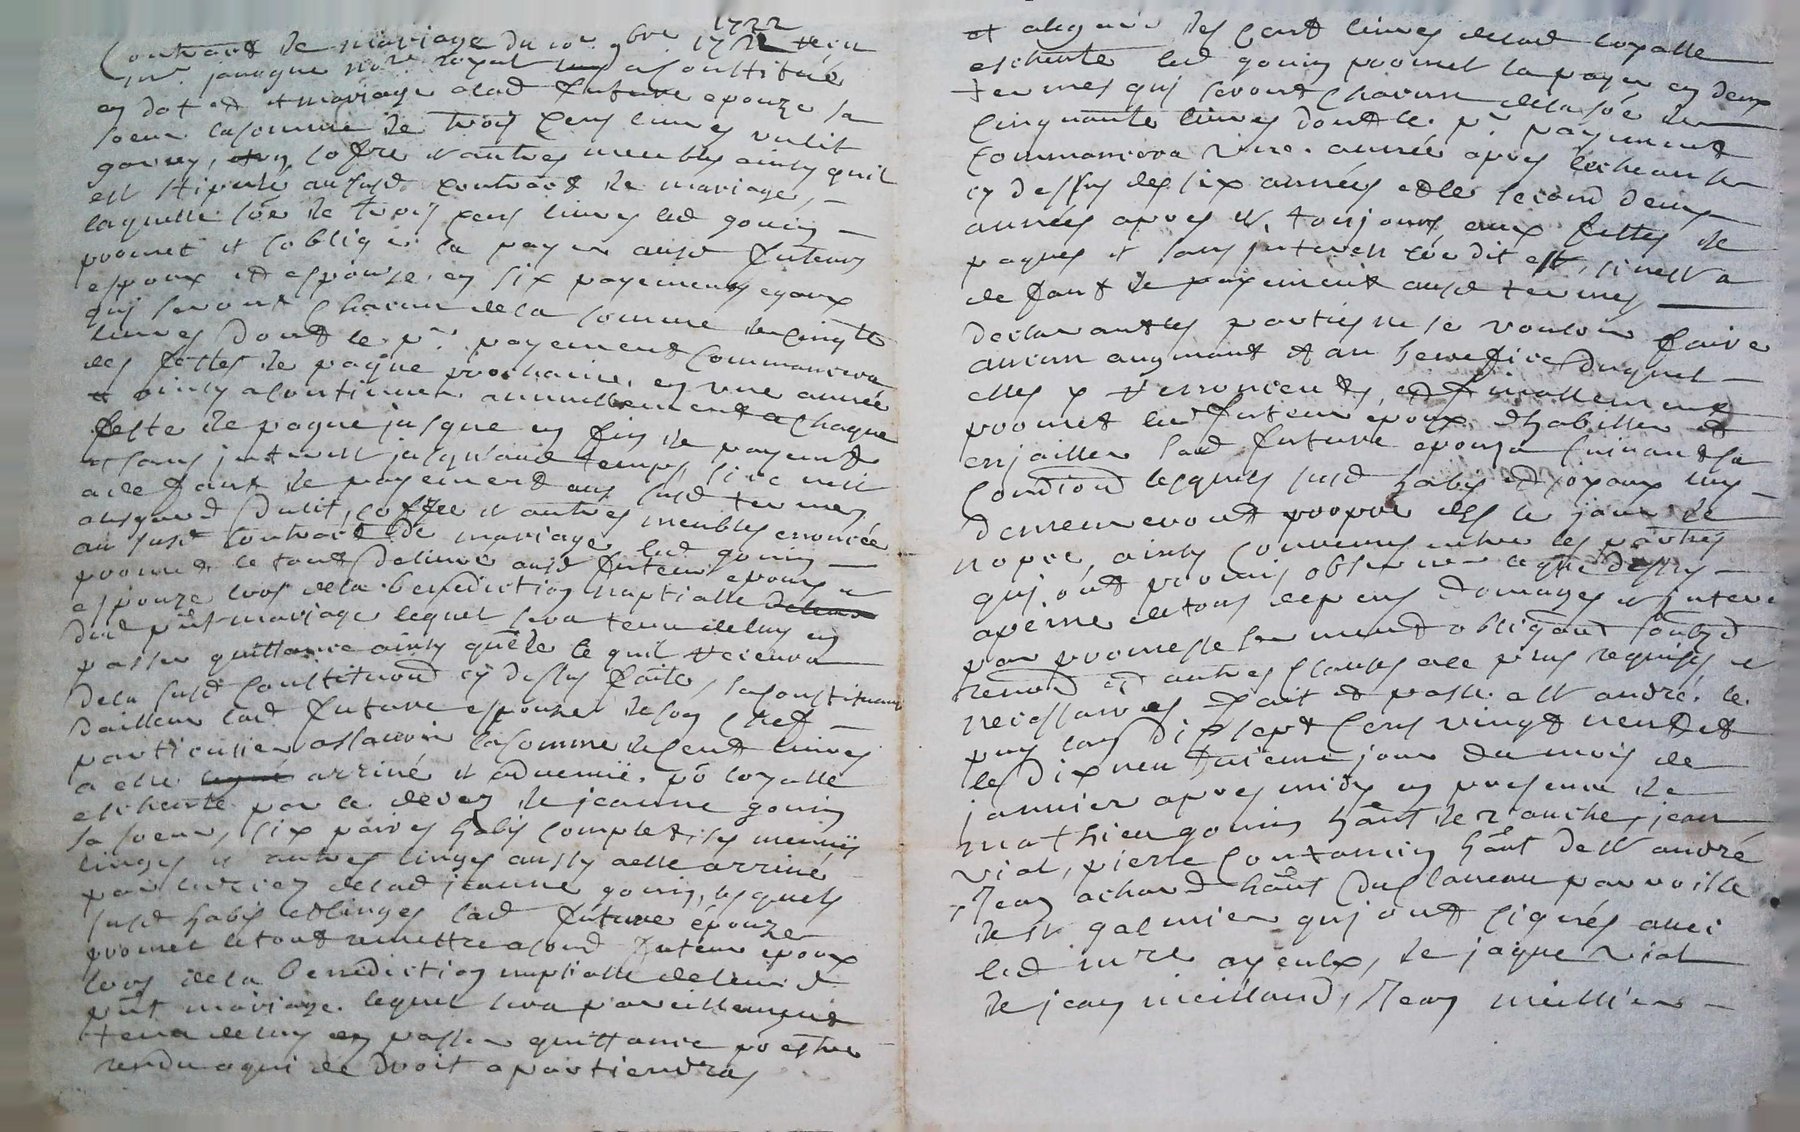 1722
Contract de mariage du 10e 9bre 1722 reçu
Mre janogue nore royal a Constitué
en dot et mariage alad future epouze sa
soeur lasomme de trois Cens livres unlit
garny, coffre et autres meubles ainsy quil
est stipulé aususd contract de mariage,
laquelle soe de trois cens livres led gonin
promet et soblige la payer ausd futeurs
espoux et espouze en six payements egaux
qui seront Chacun dela somme decinqte
livres dont le pr payement Commancera
des fettes de paque prochaine, en une année
et ainsy acontinuer annuellement a Chaque
feste de paque jusque en fin de payemt
et sans interest jusquaud temps, sinest
adefaut de payement aux susd termes
alesgard dulit, coffre et autres meubles enoncée
au susd contract de mariage led gonin
promet le tout delivré ausd futeur epoux et
espouze lors dela benediction nuptialle
dud pnt mariage lequel sera tenu deluy en
passer quittance ainsy quede ce quil recevra
dela susd Constitution cy dessus faite, seconstituant
dailleur lad future espouze deson Chef
particulier assavoir lasomme decent livres
a elle arrivé et advenue po loyalle
escheute par le deces de jeanne gonin
sa soeur, six paires habis complet, ses menus
linges et autres linges aussy aelle arrivé
par ledeces delad jeanne gonin, lesquels
susd habis etlinges lad future epouze
promet letout remettre asond futeur epoux
lors dela benediction nuptialle deleurd
pnt mariage lequel sera pareillement
tenu deluy en passer quittance po estre
rendu aqui de droit apartiendra
et alegard des Cent livres delad loyalle
escheute led gonin promet la payer en deux
termes qui seront Chacun dela soe de
Cinquante livres dont le pr payement
Commancera une année apres lecheance
cy dessus des six années et le second deux
années apres et toujours aux fettes de
paques et sans interest coe dit est, sinest a
defaut de payement ausd termes
declarant les parties ne se vouloir faire
aucun augmant et au benefice duquel
elles y renoncent, et finallement
promet led futeur epoux dhabiller et
enjailler lad future epouze suivant sa
Condiond lesquels susd habis et joyaux luy
demeureront propre des le jour de
nopce, ainsy Convenus entre les parties
qui ont promis observer ceque dessus
apeine detous depens domages et interes
par promesse serment obligaond soubzd
renond et autres clauses ace plus requises et
necessaires fait et passé a st andré le
puy lan dix sept Cens vingt neuf et
le dixneufvieme jour du mois de
janvier apres midy en presence de
mathieu gonin hant de ranches, jean
vial, pierre Contamin hant de st andré
Jean achard hant Du Clameau parroisse
de st galmier qui ont signés avec
led mre ayeulx, de jaque vial
de jean meilland, Jean meillier